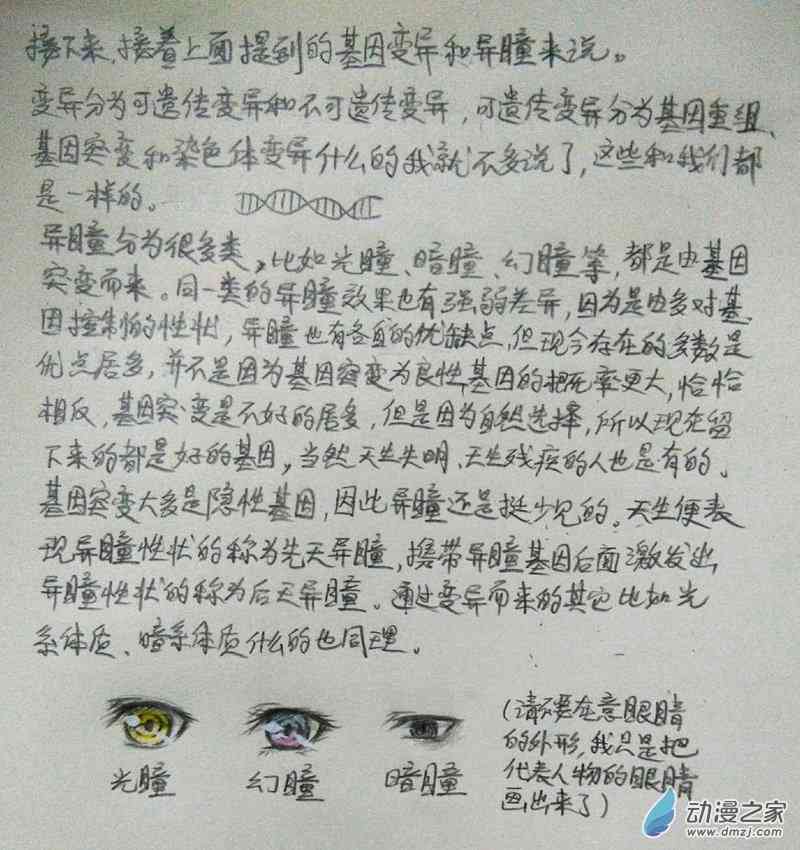 接下来,接着上面提到的基因变异和异瞳来说。
变异分为可遗传变异和不可遗传变异,可遗传变异分为基因重组、
基因突变和染色体变异什么的我就不多说了,这些和我们都
是一样的。
异瞳分为很多类,比如光瞳、暗瞳、幻瞳等,都是由基因
突变而来。同一类的异瞳效果也有强弱差异,因为是由多对基
因控制的性状,异瞳也有各自的优缺点,但现今存在的多数是
优点居多,并不是因为基因突变为良性基因的概率更大,恰恰
相反,基因突变是不好的居多,但是因为自然选择,所以现在留
下来的都是好的基因。当然天生失明、天生残疾的人也是有的。
基因突变大多是隐性基因,因此异瞳还是挺少见的。天生便表
现异瞳性状的称为先天异瞳,携带异瞳基因后面激发出
异瞳性状的称为后天异瞳。通过变异而来的其它比如光
系体质、暗系体质什么的也同理。
光瞳 幻瞳 暗瞳
(请不要在意眼睛
的外形,我只是把
代表人物的眼睛
画出来了)
动漫之家
www.dmzj.com